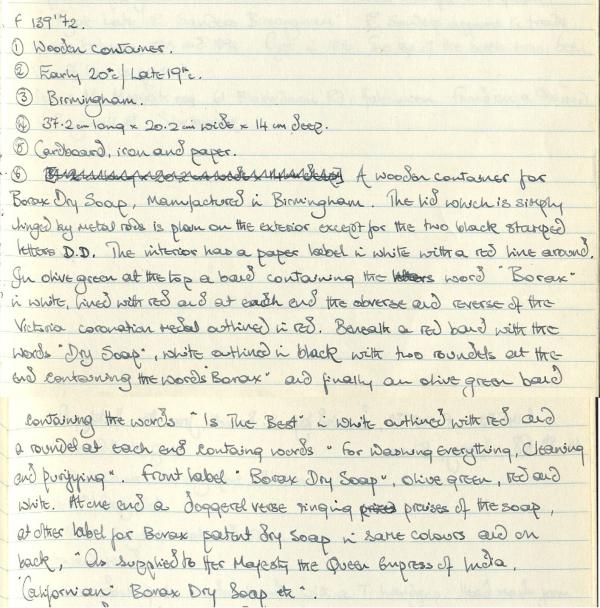 F 139'72.
① Wooden container.
② Early 20th c/Late 19th c.
③ Birmingham.
④ 37.2 cm long × 20.2 cm wide × 14 cm deep.
⑤ Cardboard, iron and paper.
⑥ A wooden container for
Borax Dry Soap, Manufactured in Birmingham. The lid which is simply
hinged by metal rods is plain on the exterior except for the two black stamped
letters D.D. The interior has a paper label in white with a red line around.
In olive green at the top a band containing the letters word "Borax"
in white, lined with red and at each end the obverse and reverse of the
Victoria coronation medal outlined in red. Beneath a red band with the
words "Dry Soap", white outlined in black with two roundels at the
end containing the words "Borax" and finally an olive green band
containing the words "Is The Best" in white outlined with red and
a roundel at each end containg words "For Washing Everything, Cleaning
and purifying". Front label "Borax Dry Soap", olive green, red and
white. At one end a doggerel verse singing praises of the soap,
at other label for Borax patent dry Soap in same colours and on
back, "As supplied to Her Majesty the Queen Empress of India,
"Californian" Borax Dry Soap etc".